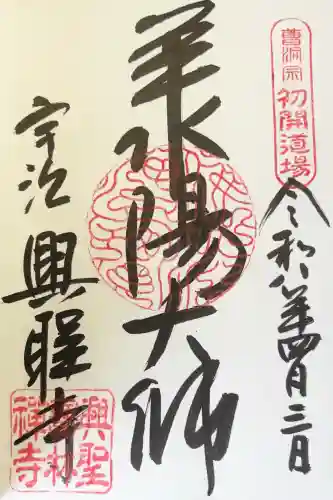 曹洞宗
初開道場
令和八年四月三日
承陽大師
宇治
興聖寺
興聖
禅寺